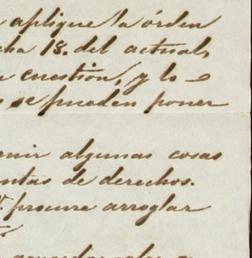 aplique la órden
cha 18. del actual,
cuestion, y lo
se pueden poner
enir algunas cosas
entas de derechos.
procure arreglar